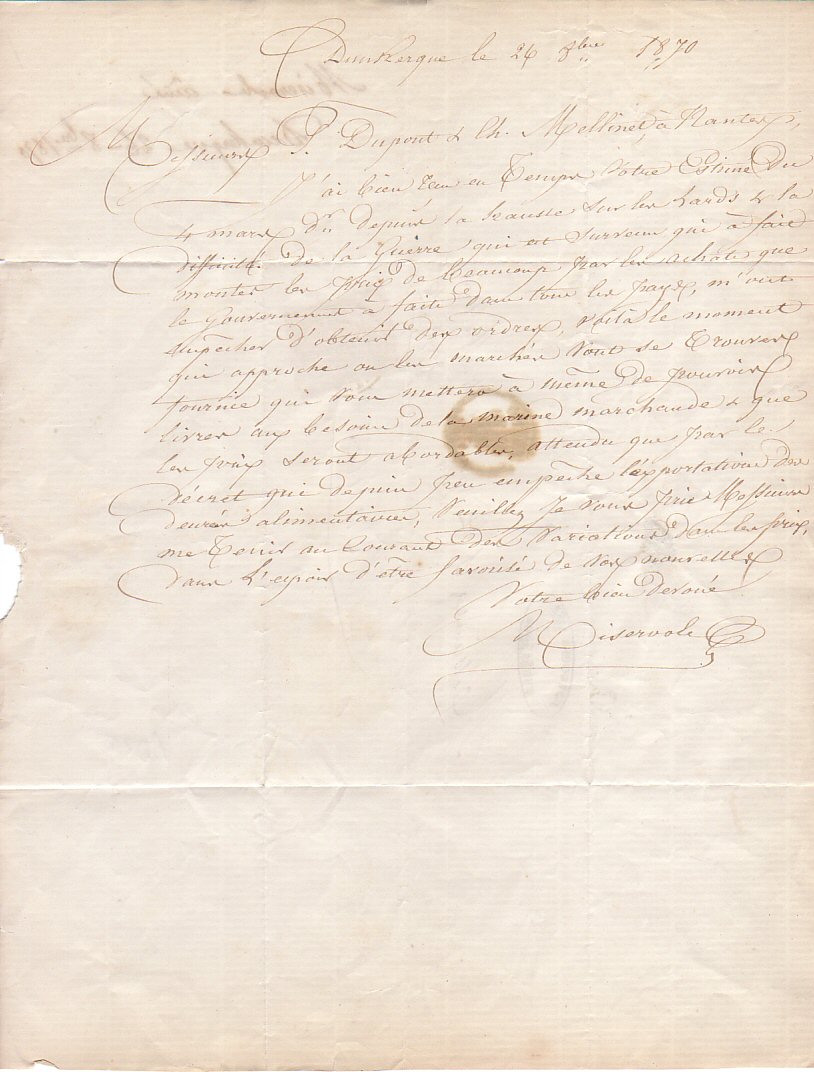 Dunkerque le 26 8bre 1870
Messieurs P. Dupont & Ch. Mellinet, à Nantes,
J'ai bien reçu en Temps Votre Estimée Du
4 mars dr. Depuis la hausse sur les lards & la
difficulté de la Guerre qui est survenu qui à fait
monter les prix de beaucoup par les achats que
le Gouvernement à faite dans tous les pays, m'ont
empêcher d'obtenir des ordres, voilà le moment
qui approche ou les marchés vont se trouver
fournie qui vous mettera à même de pouvoir
livrer aux besoins de la marine marchande & que
les prix seront abordables, attendu que par le
décret qui depuis peu empêche l'exportation des
denrées alimentaires, Veuillez Je vous prie Messieurs
me Tenir au Courant des Variations dans les prix,
dans L'espoir d'être favorisé de vos nouvelles
Votre bien dévoué